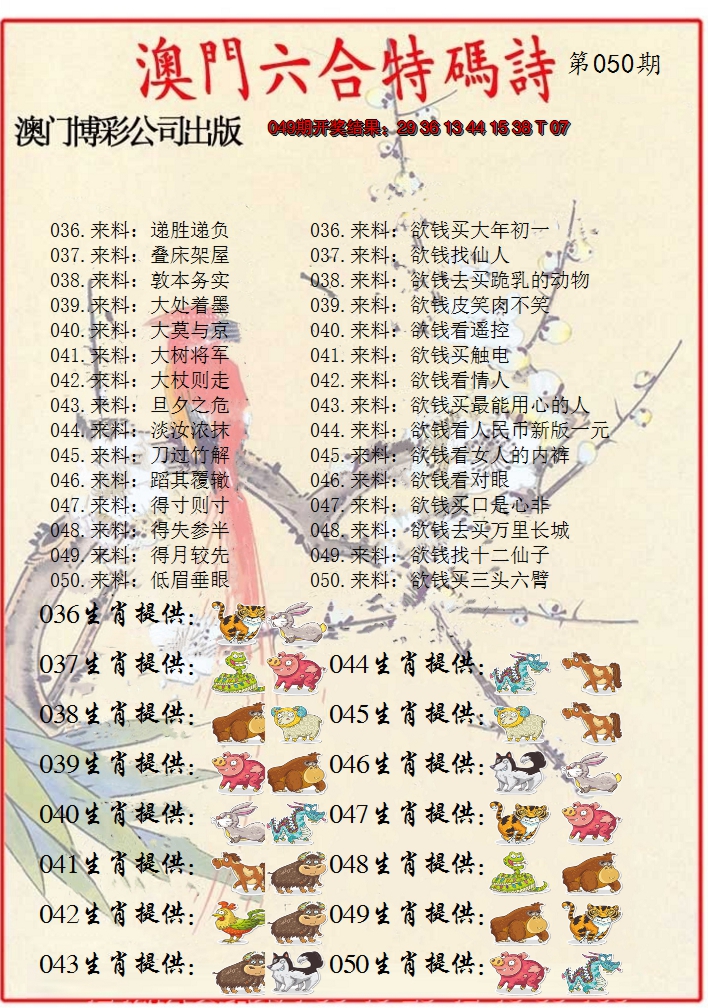 澳門六合特碼詩 第050期
澳门博彩公司出版 049期开奖结果：29 36 13 44 15 38 T 07
036.来料：递胜递负 036.来料：欲钱买大年初一
037.来料：叠床架屋 037.来料：欲钱找仙人
038.来料：敦本务实 038.来料：欲钱去买跪乳的动物
039.来料：大处着墨 039.来料：欲钱皮笑肉不笑
040.来料：大莫与京 040.来料：欲钱看遥控
041.来料：大树将军 041.来料：欲钱买触电
042.来料：大杖则走 042.来料：欲钱看情人
043.来料：旦夕之危 043.来料：欲钱买最能用心的人
044.来料：淡妆浓抹 044.来料：欲钱看人民币新版一元
045.来料：刀过竹解 045.来料：欲钱看女人的内裤
046.来料：蹈其覆辙 046.来料：欲钱看对眼
047.来料：得寸则寸 047.来料：欲钱买口是心非
048.来料：得失参半 048.来料：欲钱去买万里长城
049.来料：得月较先 049.来料：欲钱找十二仙子
050.来料：低眉垂眼 050.来料：欲钱买三头六臂
036生肖提供：
037生肖提供： 044生肖提供：
038生肖提供： 045生肖提供：
039生肖提供： 046生肖提供：
040生肖提供： 047生肖提供：
041生肖提供： 048生肖提供：
042生肖提供： 049生肖提供：
043生肖提供： 050生肖提供：